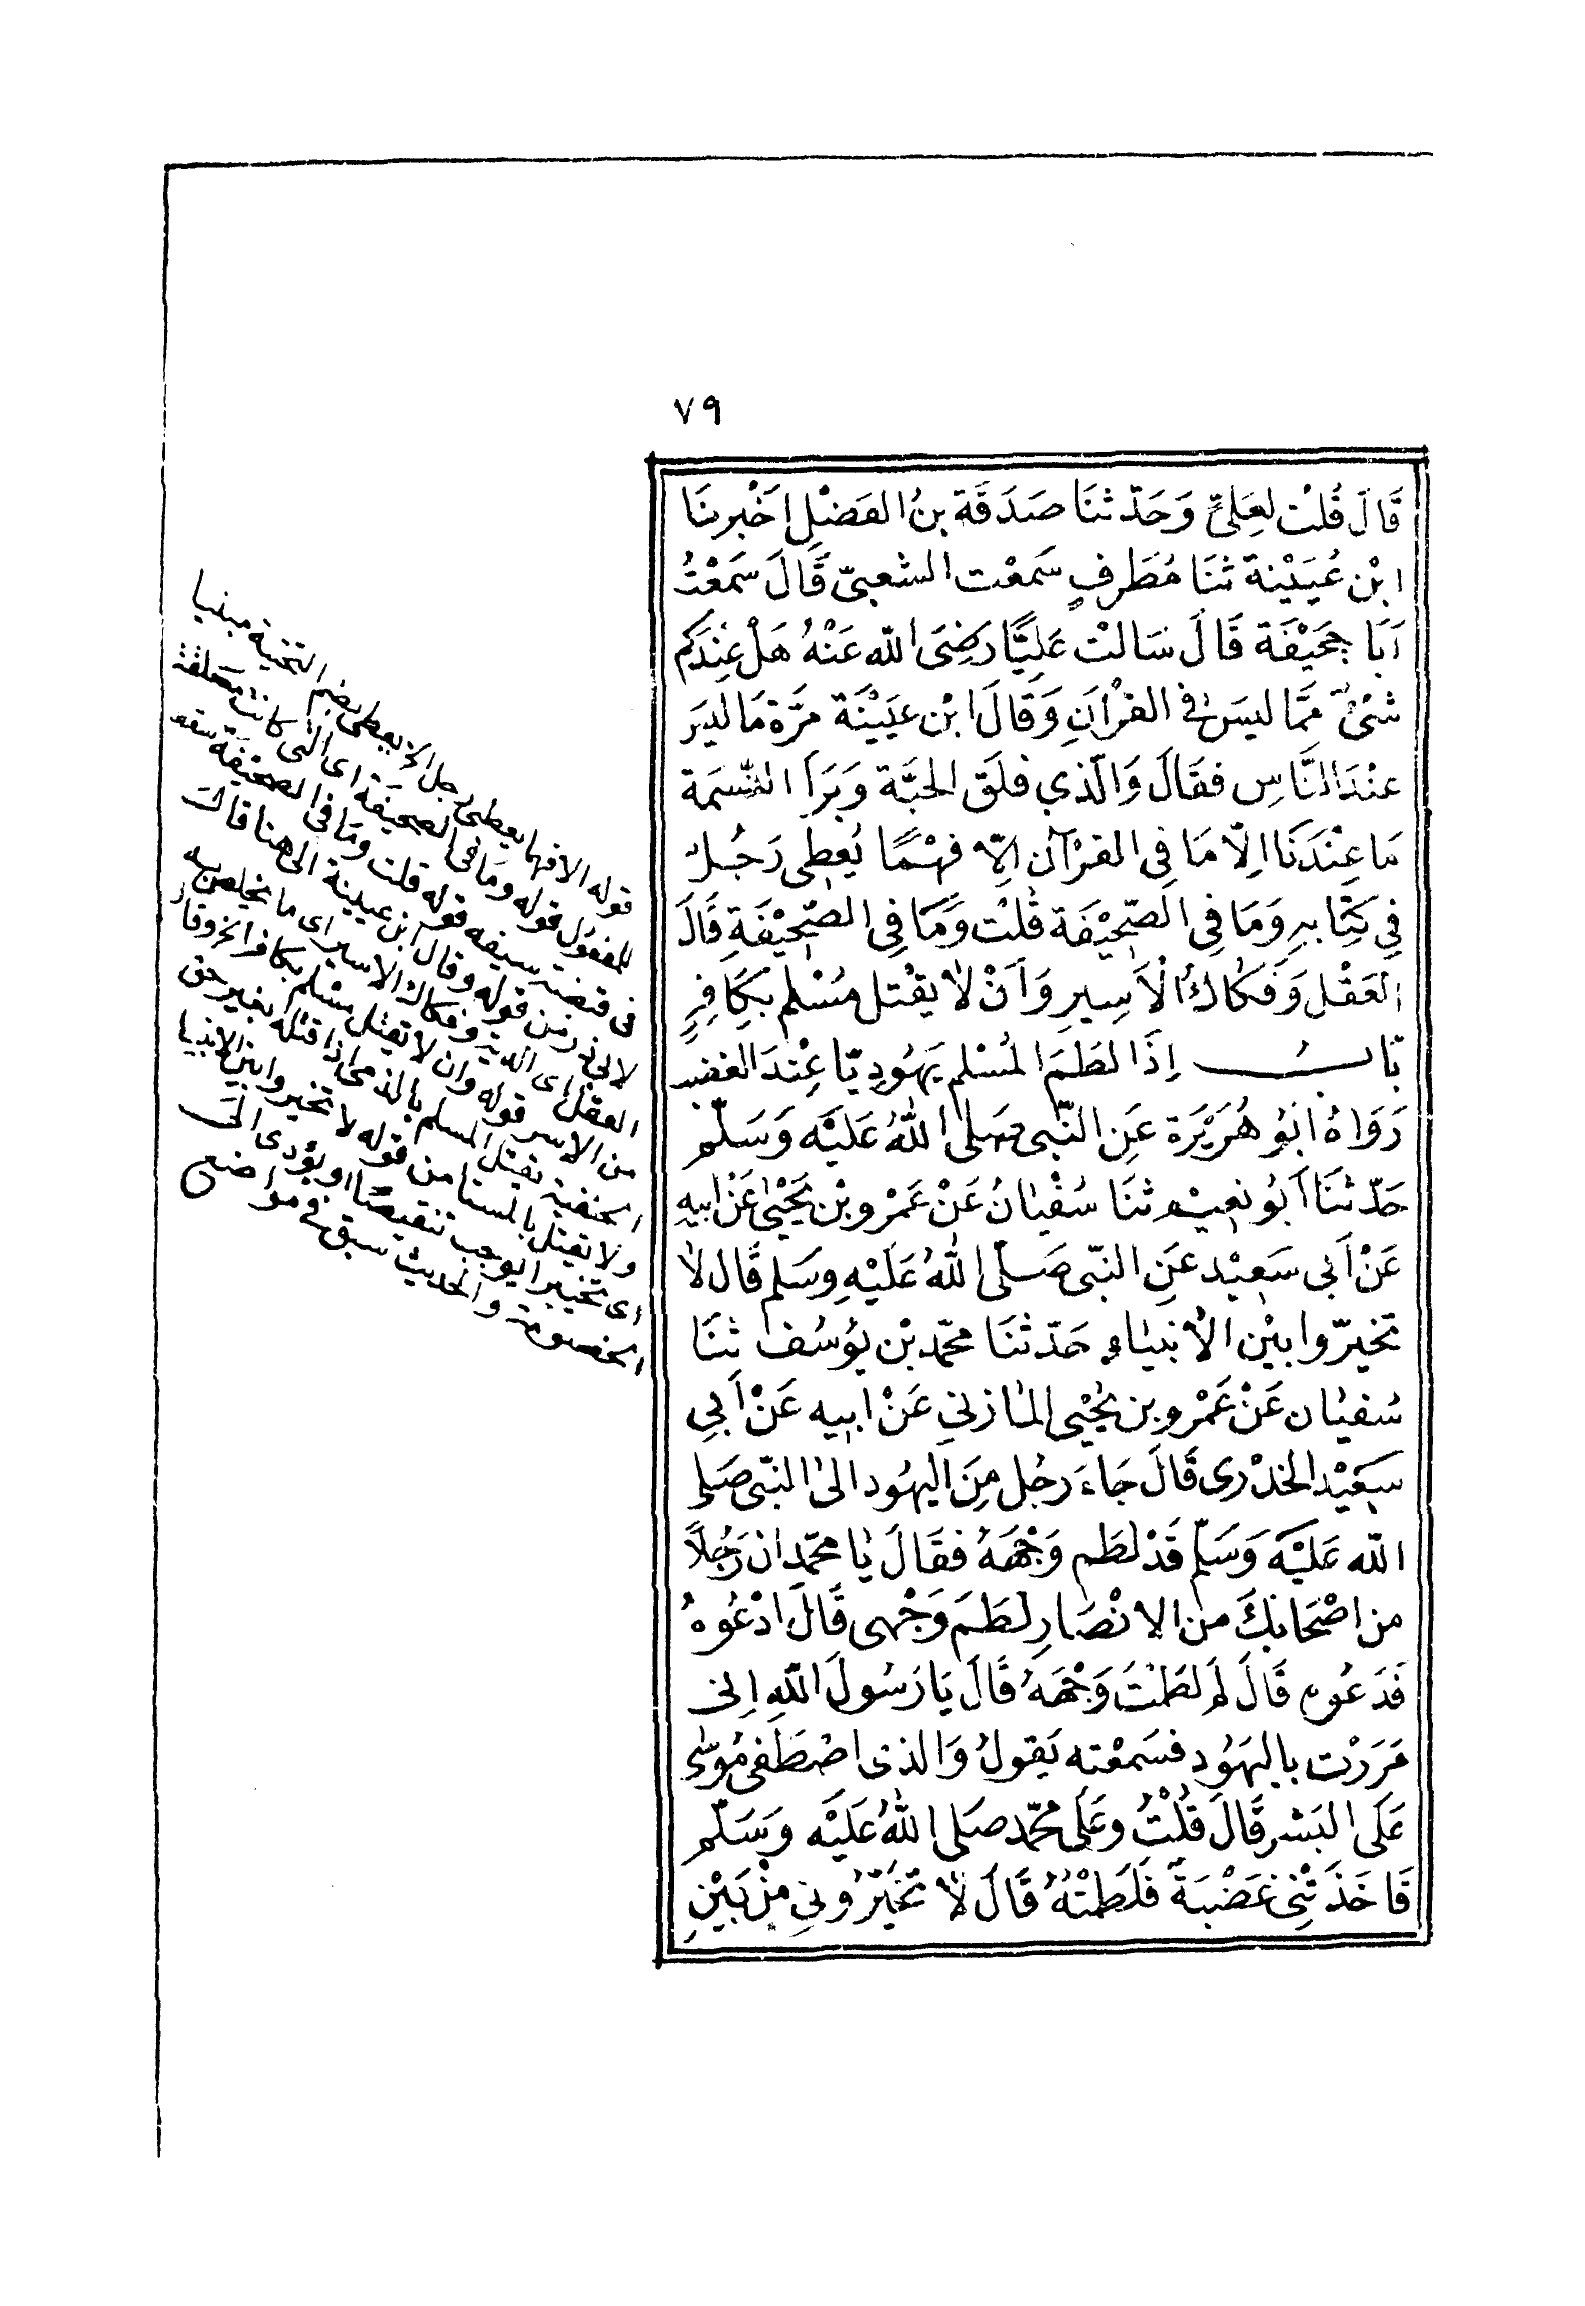 ٧٩
قَالَ قُلْت لِعَلِيٍّ وَحَدّثنَا صَدَقَة بنُ الفَضْلِ اخْبرنَا
ابْن عُيَيْنة ثنَا مُطَرفٍ سَمعْت الشعبىّ قَالَ سَمعْتُ
اَبَا جحَيْفَة قَالَ سَالتْ عَلِيًّا رَضِىَ اللّه عَنْهُ هَلْ عِنْدَكم
شىْءٌ ممَّا ليسَ فى القرْاٰنِ وَقَالَ ابْن عيَيْنَة مرَّة مَا ليسَ
عنْدَ النَّاسِ فقَالَ وَالّذي فلَقَ الحبَّة وَبَرَاَ النَّسَمَة
مَا عِنْدَنَا اِلّا مَا فِى القرْآن اِلّا فهْمًا يُعطِى رَجُلٌ
فِي كِتَابِهِ وَمَا فِي الصّحِيْفَة قُلْت وَمَا فِي الصّحِيْفَةِ قَالَ
العَقْل وَفَكَاكُ الْاَسِيرِ وَاَنْ لَا يقْتل مُسْلم بكَافِرٍ
بَابُ اِذَا لطَمَ المُسْلم يَهُودِيّا عِنْدَ الغضب
رَوَاهُ ابُو هُرَيْرَة عَن النّبى صَلى اللّٰهُ عَليَه وَسَلّم
حَدّثنَا اَبُو نعيْم ثنَا سُفْيَانُ عَنْ عَمْرو بْن يَحْيٰى عَنْ ابيهِ
عَنْ اَبى سَعيْد عَنِ النّبى صَلّى اللّٰهُ عَلَيْهِ وسَلم قَال لَا
تخيرّوا بيْن الأنبيَاءِ حَدّثنَا محمّد بْن يوُسُف ثنَا
سُفيَان عَنْ عَمْرو بن يحْيى المَازنِي عَنْ ابيه عَنْ اَبِي
سَعَيْد الخدْرى قَالَ جَاءَ رجُل مِنَ اليهُود الى النّبى صَلى
اللّه عَليْه وَسَلّم قَدْ لطَم وَجْهَهُ فقَالَ يَا محمّد ان رَجُلاً
من اصْحَابكَ من الانْصَارِ لطَمَ وَجْهى قَالَ ادْعُوهُ
فدَعُوه قَالَ لم لطَمْتَ وَجْهَهُ قَالَ يَا رَسُولَ اللّهِ اِنى
مَرَرْت باليهُود فسَمعْته يَقولُ وَالذى اصْطَفى مُوسٰى
عَلَى البَشر قَالَ قُلْتُ وعَلى محمّد صَلى اللّٰهُ عَلَيْه وَسَلّم
فَاخَذَتْنِى غَضْبَة فَلَطَمْتُهُ قَالَ لَا تخيَّرُوني منْ بَيْنِ
قوله الا فهما يعطى رجل الا يعطى بضم التحتية مبنيا
للمفعول قوله وما فى الصحيفة اى التى كانت معلقة
فى قبضة سيفه قوله قلت وما فى الصحيفة سقط
لابى ذر من قوله وقال ابن عيينة الى هنا قال
العقل اى الدية وفكاك الاسير اى ما يخلص به
من الاسر قوله وان لا يقتل مسلم بكافر الخ وقال
الحنفية يقتل المسلم بالذمى اذا قتله بغير حق
ولا يقتل بالمستامن قوله لا تخيروا بين الانبيا
اى تخييرا يوجب تنقيصا او يؤدى الى
الخصومة والحديث سبق فى مواضع